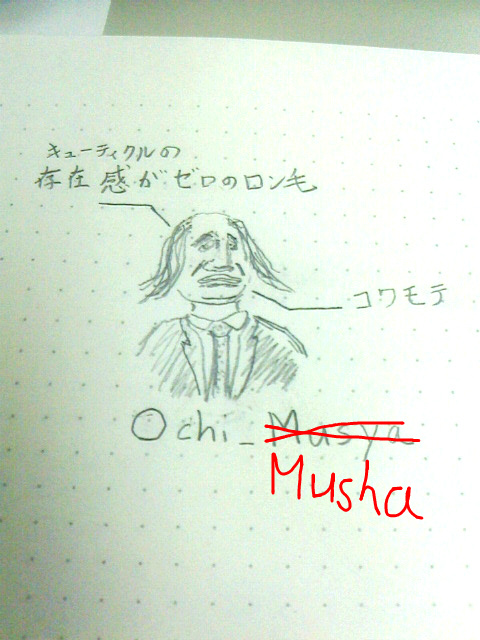 キューティクルの
存在感がゼロのロン毛
コワモテ
Ochi_Musya
Musha